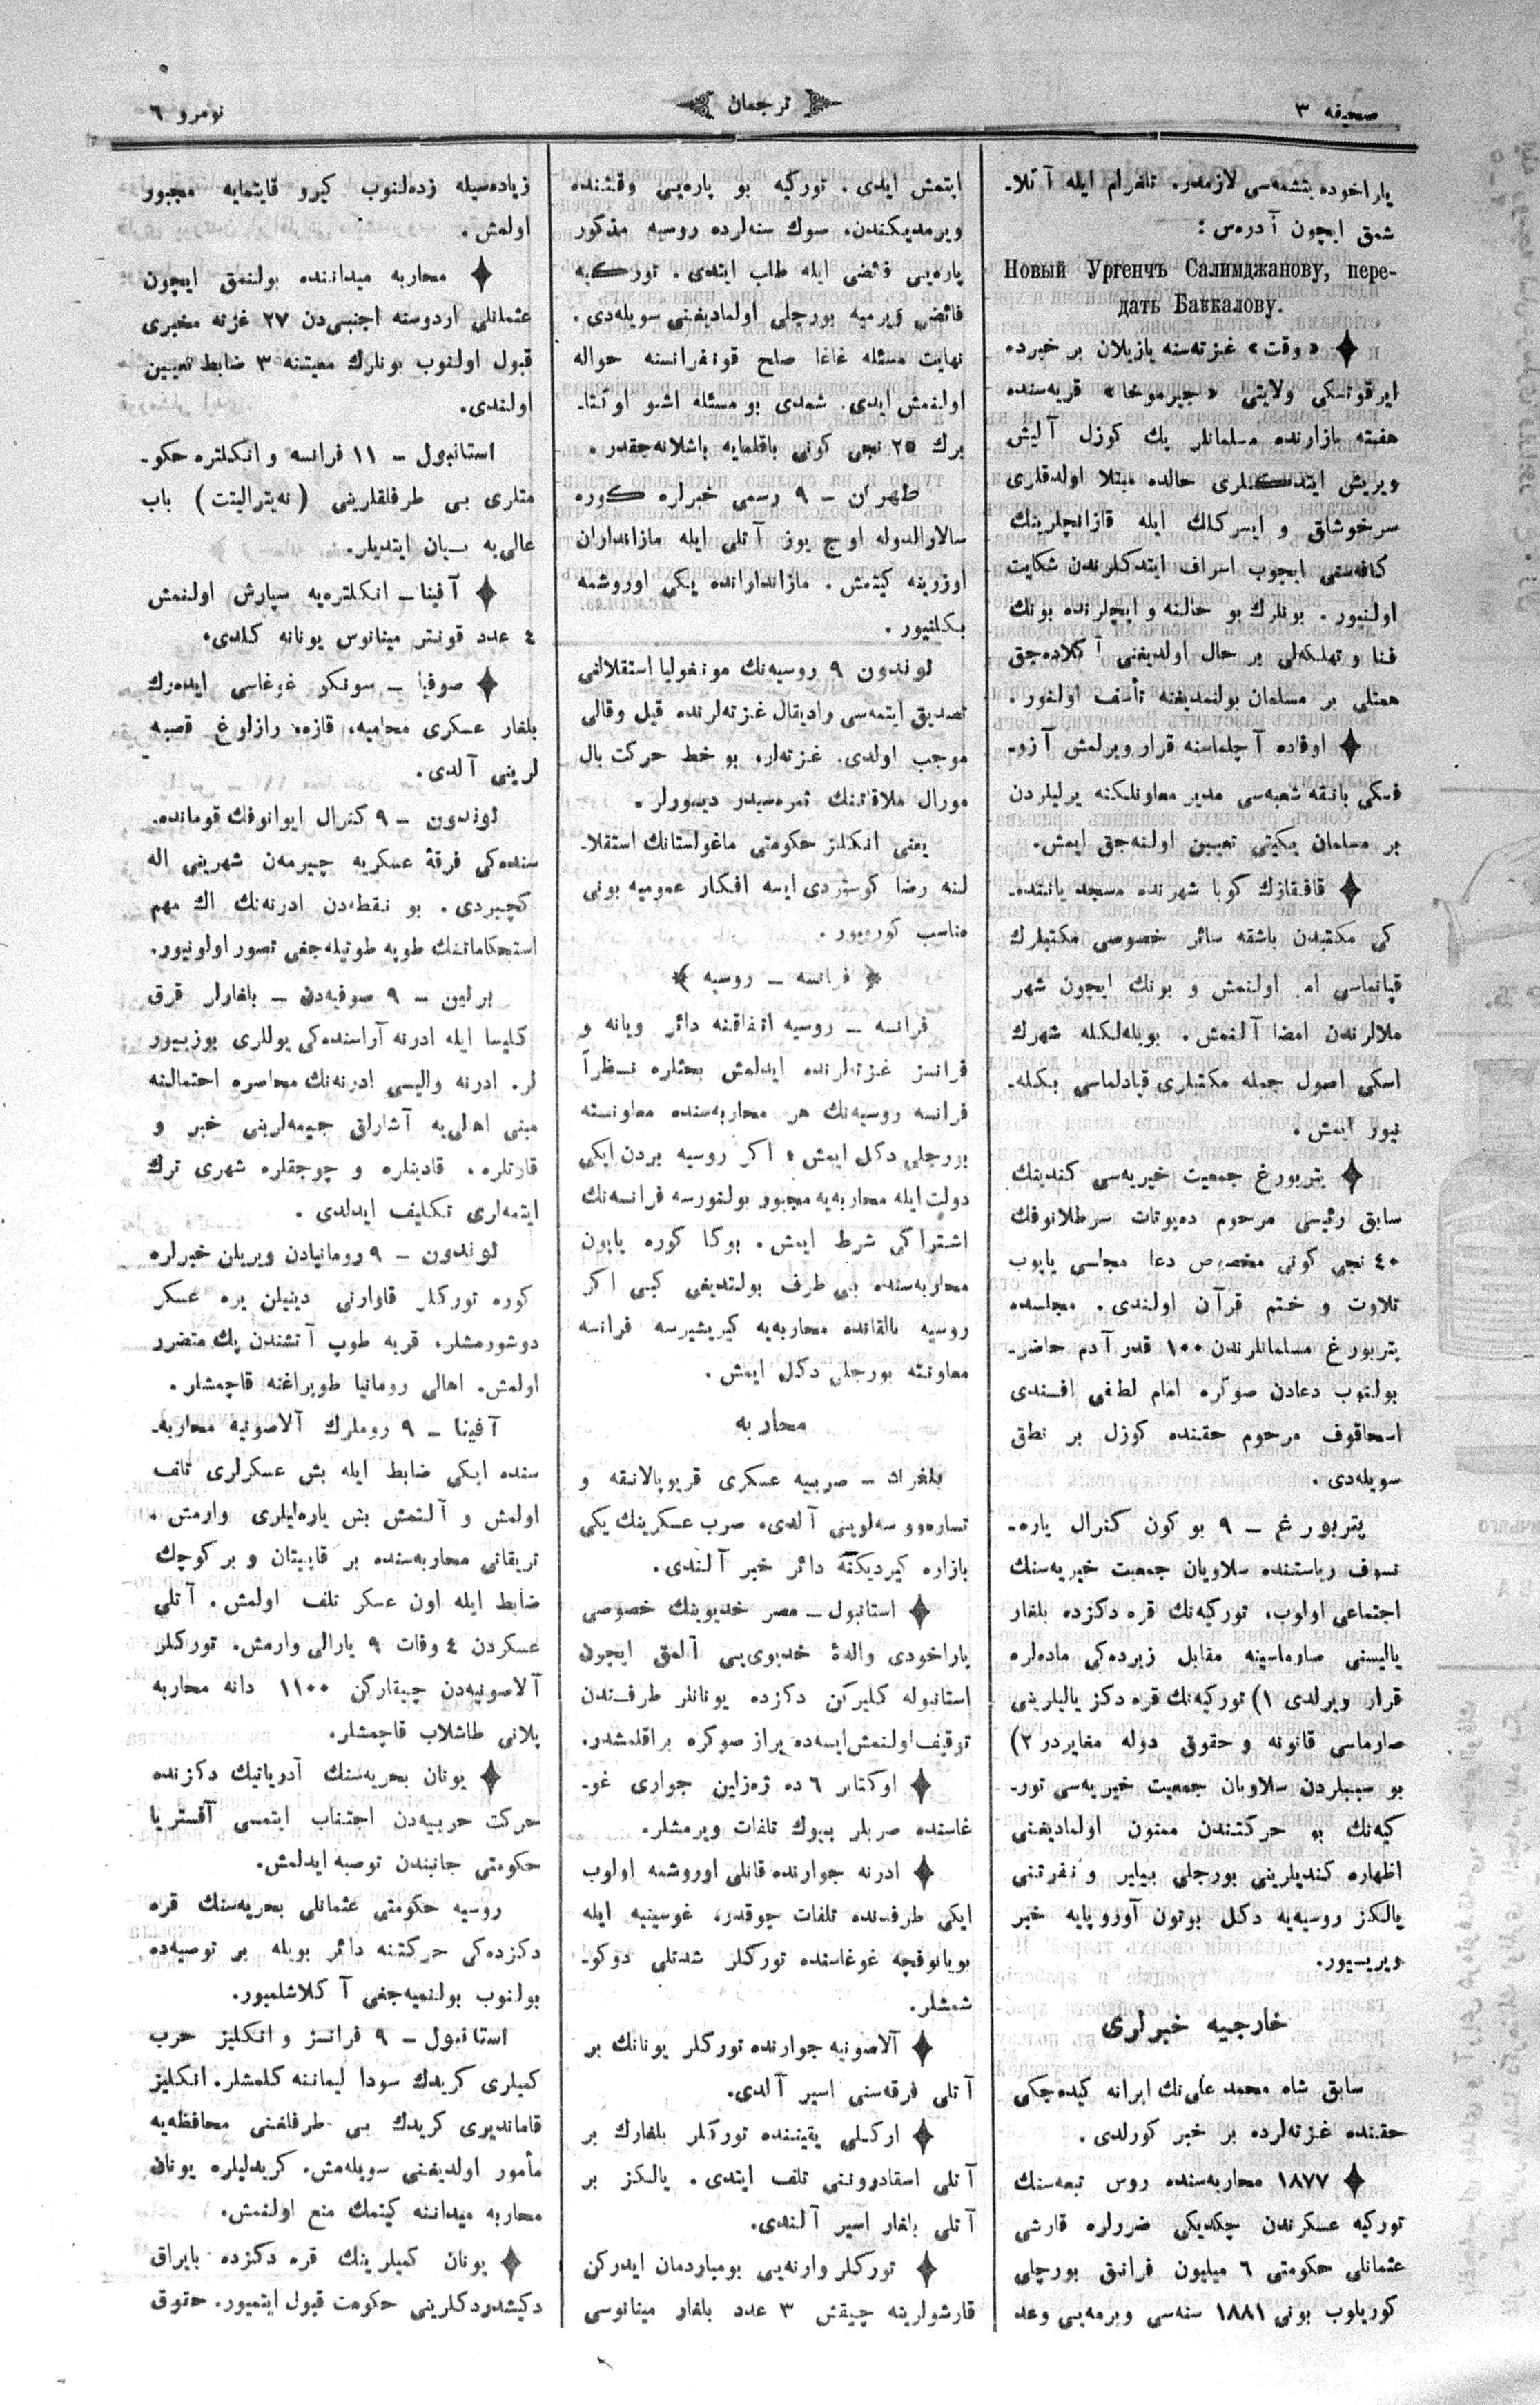 صحیفه ۳
ترجمان
نومرو ٦
پاراخوده بتشمه‌سی لازمدر. تلغرام ایله آ کلا-
شمق ایچون آدرس:
Новый Ургенчъ Салимджанову, пере-
дать Баккалову.
«وقت» غزته‌سنه یازیلان بر خبرده
ایرقوتسکی ولایتی «چیرموخا» قریه‌سنده
هفته بازارنده مسلمانلر پك کوزل آلیش
ویریش ایتدکلری حالده مبتلا اولدقلری
سرخوشلق و ایسرکلك ایله قازانچلرینك
کافه‌سنی ایچوب اسراف ایتدکلرندن شکایت
اولنیور. بونلرك بو حالنه و ایچلرنده بونك
فنا و تهلکه‌لی بر حال اولدیغنی آکلاده‌جق
همتلی بر مسلمان بولنمدیغنه تأسف اولنور.
اوفاده آچلماسنه قرار ویرلمش آزو-
فسکی بانقه شعبه‌سی مدیر معاونلکنه یرلیلردن
بر مسلمان یکیتی تعیین اولنه‌جق ایمش.
قافقازك کوبا شهرنده مسجد یاننده-
کی مکتبدن باشقه سائر خصوصی مکتبلرك
قپانماسی امر اولنمش و بونك ایچون شهر
ملالرندن امضا آلنمش. بویله‌لکله شهرك
اسکی اصول جمله مکتبلری قپادلماسی بکله-
نیور ایمش.
پتربورغ جمعیت خیریه‌سی کندینك
سابق رئیسی مرحوم ده‌پوتات سرطلانوفك
٤٠ نجی کونی مخصوص دعا مجلسی یاپوب
تلاوت و ختم قرآن اولندی. مجلسده
پتربورغ مسلمانلرندن ۱۰۰ قدر آدم حاضر
بولنوب دعادن صوکره امام لطفی افندی
اسحاقوف مرحوم حقنده کوزل بر نطق
سویله‌دی.
پتربورغ – ۹ بو کون کنرال پاره-
نسوف ریاستنده سلاویان جمعیت خیریه‌سنك
اجتماعی اولوب، تورکیه‌نك قره دکزده بلغار
یالیسنی صارماسینه مقابل زیرده‌کی ماده‌لره
قرار ویرلدی ۱) تورکیه‌نك قره دکز یالیلرینی
صارماسی قانونه و حقوق دوله مغایردر ۲)
بو سببلردن سلاویان جمعیت خیریه‌سی تور-
کیه‌نك بو حرکتندن ممنون اولمادیغنی
اظهاره کندیلرینی بورجلی بیلیر و نفرتنی
یالکز روسیه‌یه دکل بوتون آوروپایه خبر
ویریسیور.
خارجیه خبرلری
سابق شاه محمد علی‌نك ایرانه کیده‌جکی
حقنده غزته‌لرده بر خبر کورلدی.
۱۸۷۷ محاربه‌سنده روس تبعه‌سنك
تورکیه عسکرندن چکدیکی ضررلره قارشی
عثمانلی حکومتی ٦ میلیون فرانق بورجلی
کوریلوب بونی ۱۸۸۱ سنه‌سی ویرمه‌یی وعد
ایتمش ایدی. تورکیه بو پاره‌یی وقتنده
ویرمدیکندن، صوك سنه‌لرده روسیه مذکور
پاره‌یی فائضی ایله طلب ایتدی. تورکیه
فائض ویرمیه بورجلی اولمادیغنی سویله‌دی.
نهایت مسئله غاغا صلح قونفرانسنه حواله
اولنمش ایدی. شمدی بو مسئله اشبو اوکتا-
برك ۲٥ نجی کونی باقلمایه باشلانه‌جقدر.
طهران – ۹ رسمی خبرلره کوره
سالارالدوله اوچ یوز آتلی ایله مازانداران
اوزرینه کیتمش. مازاندارانده یکی اوروشمه
بکلنیور.
لوندون ۹ روسیه‌نك مونغولیا استقلالنی
تصدیق ایتمه‌سی رادیقال غزته‌لرنده قیل وقالی
موجب اولدی. غزته‌لر، بو خط حرکت بال
مورال ملاقاتنك ثمره‌سیدر دیییورلر.
یعنی انکلیز حکومتی ماغولستانك استقلا-
لنه رضا کوستردی ایسه افکار عمومیه بونی
مناسب کورمیور.
﴿ فرانسه – روسیه ﴾
فرانسه – روسیه اتفاقنه دائر ویانه و
فرانسز غزته‌لرنده ایدلمش بحثلره نظراً
فرانسه روسیه‌نك هر محاربه‌سنده معاونته
بورجلی دکل ایمش؛ اکر روسیه بردن ایکی
دولت ایله محاربه‌یه مجبور بولنورسه فرانسه‌نك
اشتراکی شرط ایمش. بوکا کوره یاپون
محاربه‌سنده بی طرف بولندیغی کبی اکر
روسیه بالقانده محاربه‌یه کیریشیرسه فرانسه
معاونته بورجلی دکل ایمش.
محاربه
بلغراد – صربیه عسکری قریوپالانقه و
تساره‌وو سه‌لوینی آلدی. صرب عسکرینك یکی
بازاره کیردیکنه دائر خبر آلندی.
استانبول – مصر خدیوینك خصوصی
پاراخودی والدۀ خدیوی‌یی آلمق ایچون
استانبوله کلیرکن دکزده یونانلر طرفندن
توقیف اولنمش ایسه‌ده براز صوکره براقلمشدر.
اوکتابر ٦ ده ژه‌زاین جواری غو-
غاسنده صربلر بیوك تلفات ویرمشلر.
ادرنه جوارنده قانلی اوروشمه اولوب
ایکی طرفدنده تلفات چوقدر، غوسینیه ایله
بویانوفچه غوغاسنده تورکلر شدتلی دوکو-
شمشلر.
آلاصونیه جوارنده تورکلر یونانك بر
آتلی فرقه‌سنی اسیر آلدی.
ارکلی یقیننده تورکلر بلغارك بر
آتلی اسقادروننی تلف ایتدی. یالکز بر
آتلی بلغار اسیر آلندی.
تورکلر وارنه‌یی بومباردمان ایدرکن
قارشولرینه چیقش ۳ عدد بلغار مینانوسی
زیاده‌سیله زده‌لنوب کیرو قایتمایه مجبور
اولمش.
محاربه میداننده بولنمق ایچون
عثمانلی اردوسنه اجنبی‌دن ۲۷ غزته مخبری
قبول اولنوب بونلرك معیتنه ۳ ضابط تعیین
اولندی.
استانبول – ۱۱ فرانسه و انکلتره حکو-
متلری بی طرفلقلرینی (نه‌یترالیتت) باب
عالی‌یه بیان ایتدیلر.
آفینا – انکلتره‌یه سپارش اولنمش
٤ عدد قونتر مینانوس یونانه کلدی.
صوفیا – سونکو غوغاسی ایده‌رك
بلغار عسکری محامیه، قازه، رازلوغ قصبه
لرینی آلدی.
لوندون – ۹ کنرال ایوانوفك قوماندە-
سنده‌کی فرقۀ عسکریه چیرمەن شهرینی اله
کچیردی. بو نقطه‌دن ادرنه‌نك اك مهم
استحکاماتنك طوپه طوتیله‌جغی تصور اولونیور.
برلین – ۹ صوفیه‌دن – بلغارلر قرق
کلیسا ایله ادرنه آراسنده‌کی یوللری بوزییور
لر. ادرنه والیسی ادرنه‌نك محاصره احتمالنه
مبنی اهالی‌یه آشاراق جیمه‌لرینی خبر و
قارتلره، قادینلره و چوجقلره شهری ترك
ایتمه‌لری تکلیف ایدلدی.
لوندون – ۹ رومانیادن ویریلن خبرلره
کوره تورکلر قاوارنی دینیلن یره عسکر
دوشورمشلر، قریه طوپ آتشندن پك متضرر
اولمش. اهالی رومانیا طوپراغنه قاچمشلر.
آفینا – ۹ روملرك آلاصونیه محاربه-
سنده ایکی ضابط ایله بش عسکرلری تلف
اولمش و آلتمش بش یاره‌لیلری وارمش.
تریقانی محاربه‌سنده بر قاپیتان و بر کوچك
ضابط ایله اون عسکر تلف اولمش. آتلی
عسکردن ٤ وفات ۹ یارالی وارمش. تورکلر
آلاصونیه‌دن چیقارکن ۱۱۰۰ دانه محاربه
پلانی طاشلاب قاچمشلر.
یونان بحریه‌سنك آدریاتیك دکزنده
حرکت حربیه‌دن اجتناب ایتمسی آفستریا
حکومتی جانبندن توصیه ایدلمش.
روسیه حکومتی عثمانلی بحریه‌سنك قره
دکزده‌کی حرکتنه دائر بویله بر توصیه‌ده
بولنوب بولنمیه‌جغی آ کلاشلمیور.
استانبول – ۹ فرانسز و انکلیز حرب
کمیلری کریدك سودا لیماننه کلمشلر. انکلیز
قاماندیری کریدك بی طرفلغنی محافظه‌یه
مأمور اولدیغنی سویله‌مش. کریدلیلره یونان
محاربه میداننه کیتمك منع اولنمش.
یونان کمیلرینك قره دکزده بایراق
دکیشدردکلرینی حکومت قبول ایتمیور. حقوق